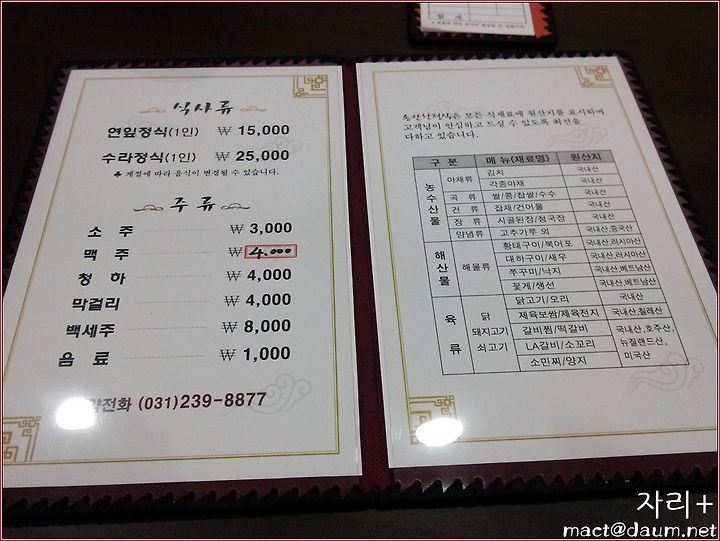 식사류
연잎정식(1인) ₩ 15,000
수라정식(1인) ₩ 25,000
♣ 계절에 따라 음식이 변경될 수 있습니다.
주류
소 주 ₩ 3,000
맥 주 ₩ 4.000
청 하 ₩ 4,000
막걸리 ₩ 4,000
백세주 ₩ 8,000
음 료 ₩ 1,000
약전화 (031)239-8877
은 모든 식재료에 원산지를 표시하여
고객님이 안심하고 드실 수 있도록 최선을
다하고 있습니다.
구 분 메 뉴(재료명) 원산지
농수산물 야채류 김치 국내산
각종야채 국내산
곡 류 쌀/콩/찹쌀/수수 국내산
건 류 잡채/건어물 국내산
장 류 시골된장/청국장 국내산
양념류 고추가루 외 국내산,중국산
해산물 해물류 황태구이/북어포 국내산,러시아산
대하구이/새우 국내산,러시아산
쭈꾸미/낙지 국내산,베트남산
꽃게/생선 국내산,베트남산
육류 닭 닭고기/오리 국내산
돼지고기 제육보쌈/제육전지 국내산,칠레산
쇠고기 갈비찜/떡갈비 국내산,호주산,
LA갈비/소꼬리 뉴질랜드산,
소민찌/양지 미국산
자리+
mact@daum.net